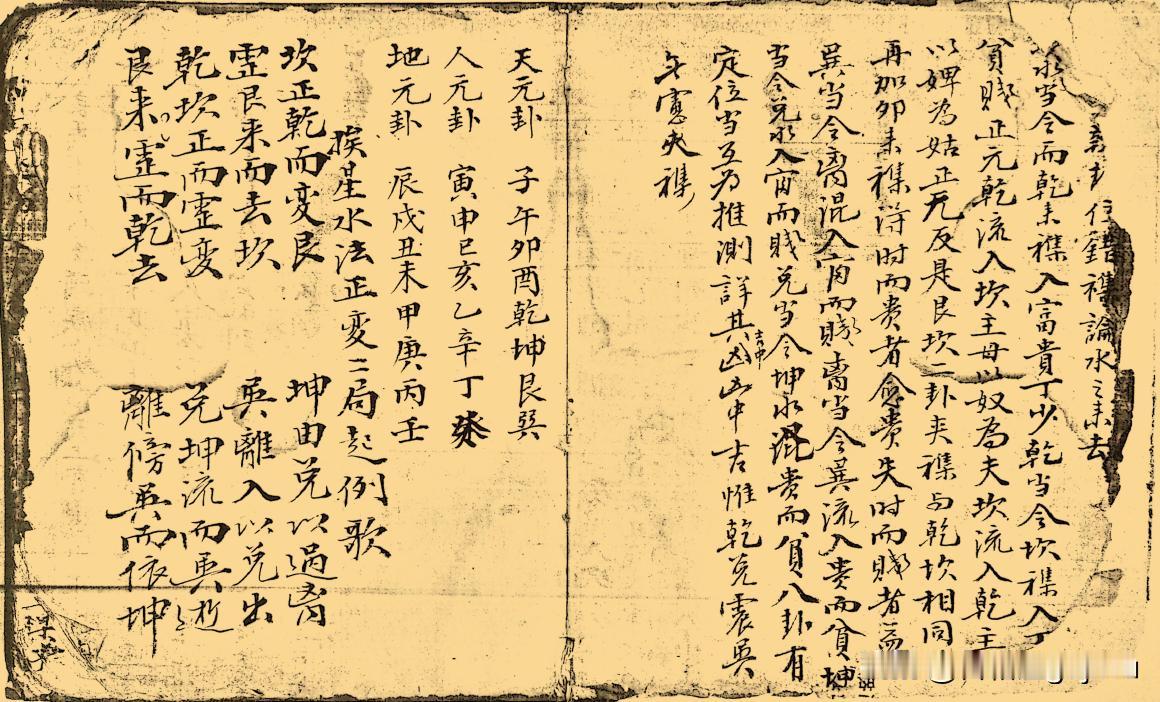 位錯襍論水之来去
水当令而乾来襍入富貴丁少乾当令坎襍入丁
貧賤正元乾流入坎主母以奴為夫坎流入乾主
以婢為姑正无反是艮坎二卦夹襍与乾坎相同
再加卯来襍得时而贵者愈贵失时而賤者益
巽当令离混入窅而賤离当令巽流入贵而貧坤
当令兑水入窅而賤兑当令坤水混贵而貧八卦有
定位当互为推测詳其凶吉中凶中吉惟乾兑震巽
无
天元卦 子午卯酉乾坤艮巽
人元卦 寅申巳亥乙辛丁癸
地元卦 辰戌丑未甲庚丙壬
挨星水法正变二局起例歌
坎正乾而变艮 坤由兑以過
霊艮来而去坎 巽離入以兑出
乾坎正而霊变 兑坤流而巽逝
艮来霊而乾去 離傍巽而依坤